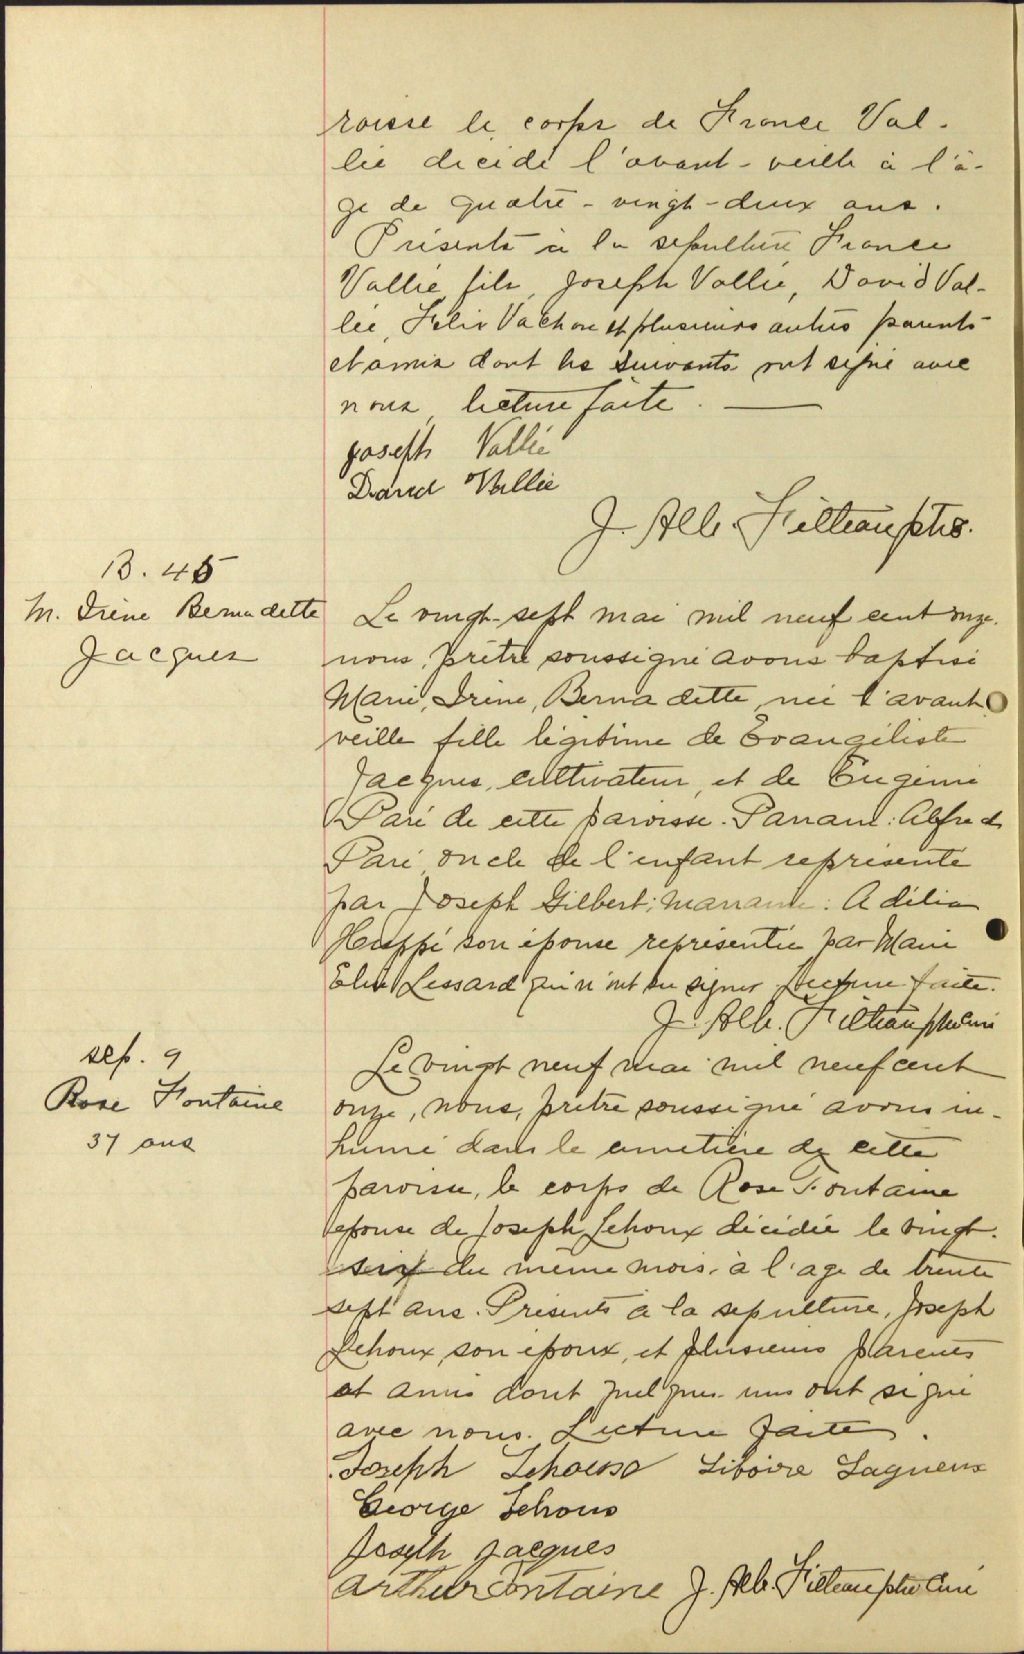 roisse le corps de France Val-
lée décédé l'avant-veille à l'â-
ge de quatre-vingt-deux ans.
Présents à la sépulture France
Vallée fils, Joseph Vallée, David Val-
lée, Félix Vachon et plusieurs autres parents
et amis dont les suivants ont signé avec
nous, lecture faite. —
Joseph Vallée
David Vallée
J. Alb. Filteau ptre.
B. 45
M. Irène Bernadette
Jacques
Le vingt-sept mai mil neuf cent onze.
nous, prêtre soussigné avons baptisé
Marie, Irène, Bernadette, née l'avant
veille fille légitime de Evangéliste
Jacques, cultivateur, et de Eugénie
Paré de cette paroisse. Parrain: Alfred
Paré, oncle de l'enfant représenté
par Joseph Gilbert; marraine: Adélia
Huppé son épouse représentée par Marie
Lessard qui n'ont su signer Lecture faite.
J. Alb. Filteau ptre curé
sep. 9
Rose Fontaine
37 ans
Le vingt neuf mai mil neuf cent
onze, nous, prêtre soussigné avons in-
humé dans le cimetière de cette
paroisse, le corps de Rose Fontaine
épouse de Joseph Lehoux décédée le vingt-
six du même mois, à l'age de trente
sept ans. Présents à la sépulture, Joseph
Lehoux, son époux, et plusieurs parents
et amis dont quelques uns ont signé
avec nous. Lecture faite.
Joseph Lehoux Liboire Lagueux
George Lehoux
Joseph Jacques
Arthur Fontaine J. Alb. Filteau ptre Curé